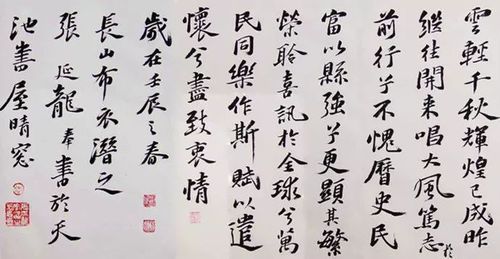 雲輕千秋輝煌已成昨
繼往開来唱大風篤志於
前行兮不愧曆史民
富以縣強兮更顯其繁
榮聆喜訊於全球兮萬
民同樂作斯賦以遣
懷兮盡致衷情
歲在壬辰之春
長山布衣潛之
張延龍奉書於天
池書屋晴窓